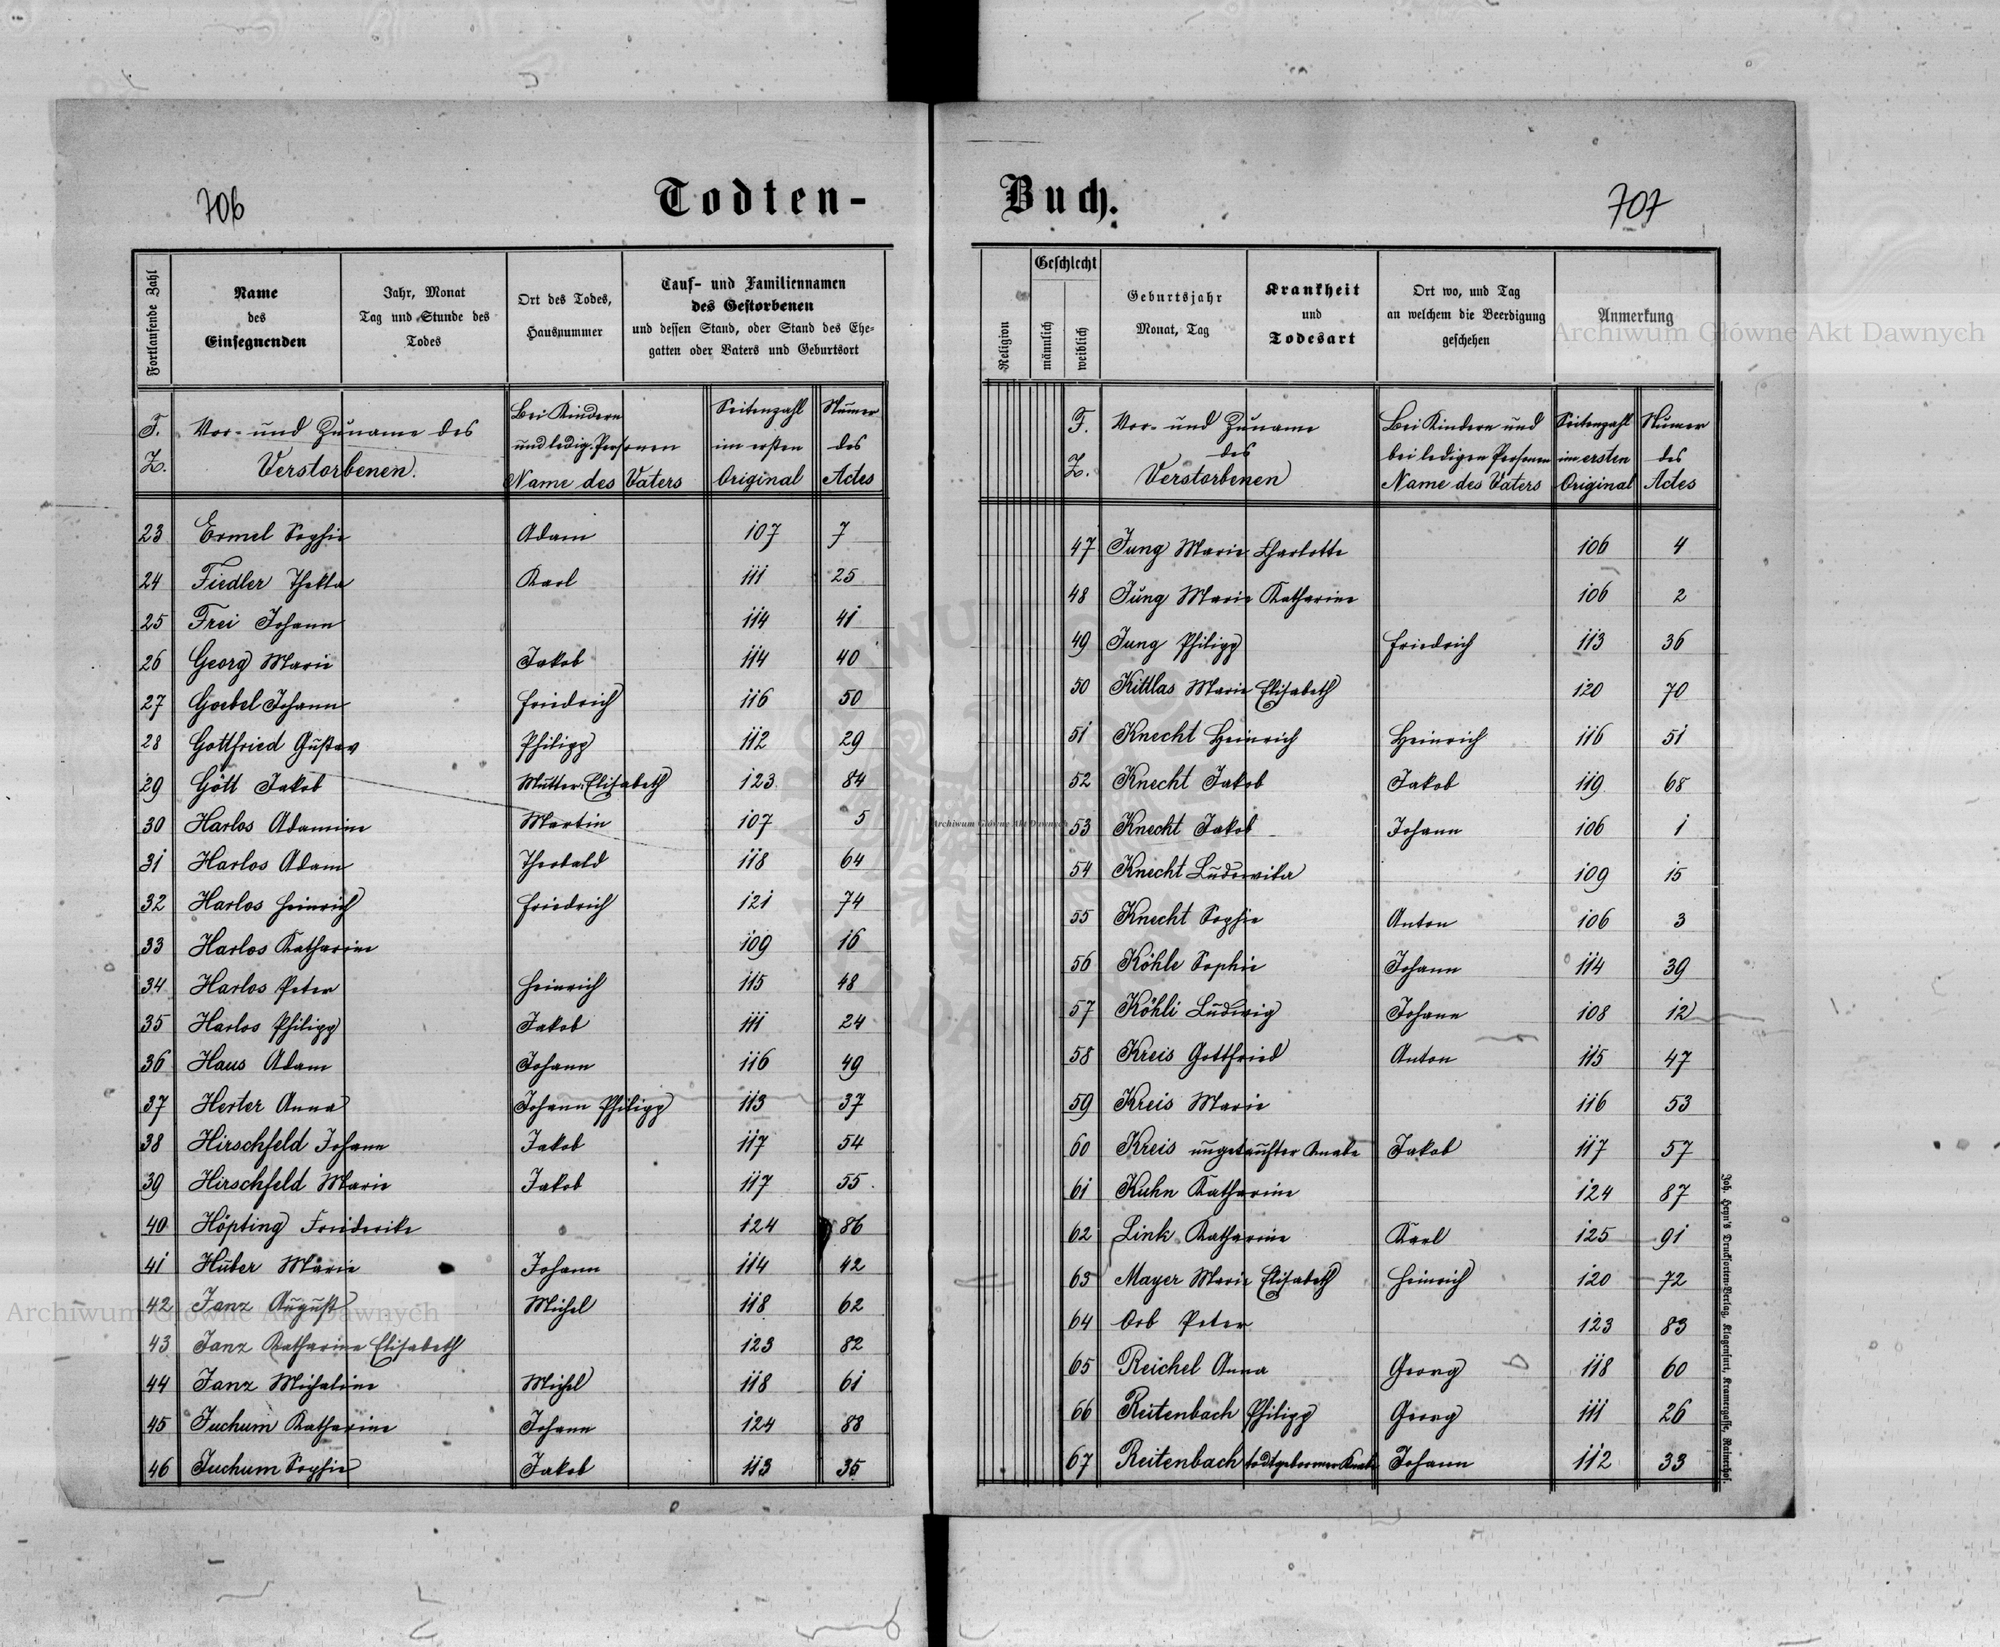 706
Todten-
Fortlaufende Zahl
Name des Einsegnenden
Jahr, Monat Tag und Stunde des Todes
Ort des Todes, Hausnummer
Tauf- und Familiennamen des Gestorbenen und dessen Stand, oder Stand des Ehegatten oder Vaters und Geburtsort
F. Z.
Vor- und Zuname des Verstorbenen.
Bei Kindern und ledig. Personen Name des Vaters
Seitenzahl im ersten Original
Numer des Actes
23 Ermel Sophie Adam 107 7
24 Fiedler Thekla Karl 111 25
25 Frei Johann 114 41
26 Georg Marie Jakob 114 40
27 Goebel Johann Friedrich 116 50
28 Gottfried Gustav Philipp 112 29
29 Gött Jakob Mutter: Elisabeth 123 84
30 Harlos Adamine Martin 107 5
31 Harlos Adam Theobald 118 64
32 Harlos Heinrich Friedrich 121 74
33 Harlos Katharine 109 16
34 Harlos Peter Heinrich 115 48
35 Harlos Philipp Jakob 111 24
36 Haus Adam Johann 116 49
37 Herter Anna Johann Philipp 113 37
38 Hirschfeld Johann Jakob 117 54
39 Hirschfeld Marie Jakob 117 55
40 Höpting Friederike 124 86
41 Huber Marie Johann 114 42
42 Janz August Michel 118 62
43 Janz Katharine Elisabeth 123 82
44 Janz Michaline Michel 118 61
45 Juchum Katharine Johann 124 88
46 Juchum Sophie Jakob 113 35
Buch.
707
Religion
Geschlecht
männlich
weiblich
Geburtsjahr Monat, Tag
Krankheit und Todesart
Ort wo, und Tag an welchem die Beerdigung geschehen
Anmerkung
F. Z.
Vor- und Zuname des Verstorbenen
Bei Kindern und bei ledigen Personen Name des Vaters
Seitenzahl im ersten Original
Numer des Actes
47 Jung Marie Charlotte 106 4
48 Jung Marie Katharine 106 2
49 Jung Philipp Friedrich 113 36
50 Kittlas Marie Elisabeth 120 70
51 Knecht Heinrich Heinrich 116 51
52 Knecht Jakob Jakob 119 68
53 Knecht Jakob Johann 106 1
54 Knecht Ludewika 109 15
55 Knecht Sophie Anton 106 3
56 Köhle Sophie Johann 114 39
57 Köhli Ludwig Johann 108 12
58 Kreis Gottfried Anton 115 47
59 Kreis Marie 116 53
60 Kreis ungetaufter Knabe Jakob 117 57
61 Kuhn Katharine 124 87
62 Link Katharine Karl 125 91
63 Mayer Marie Elisabeth Heinrich 120 72
64 Orb Peter 123 83
65 Reichel Anna Georg 118 60
66 Reitenbach Philipp Georg 111 26
67 Reitenbach todtgeborner Knabe Johann 112 33
Joh. Heyn's Drucksorten-Verlag, Klagenfurt, Kramergasse, Rainerhof.
Archiwum Główne Akt Dawnych
Archiwum Główne Akt Dawnych
Archiwum Główne Akt Dawnych